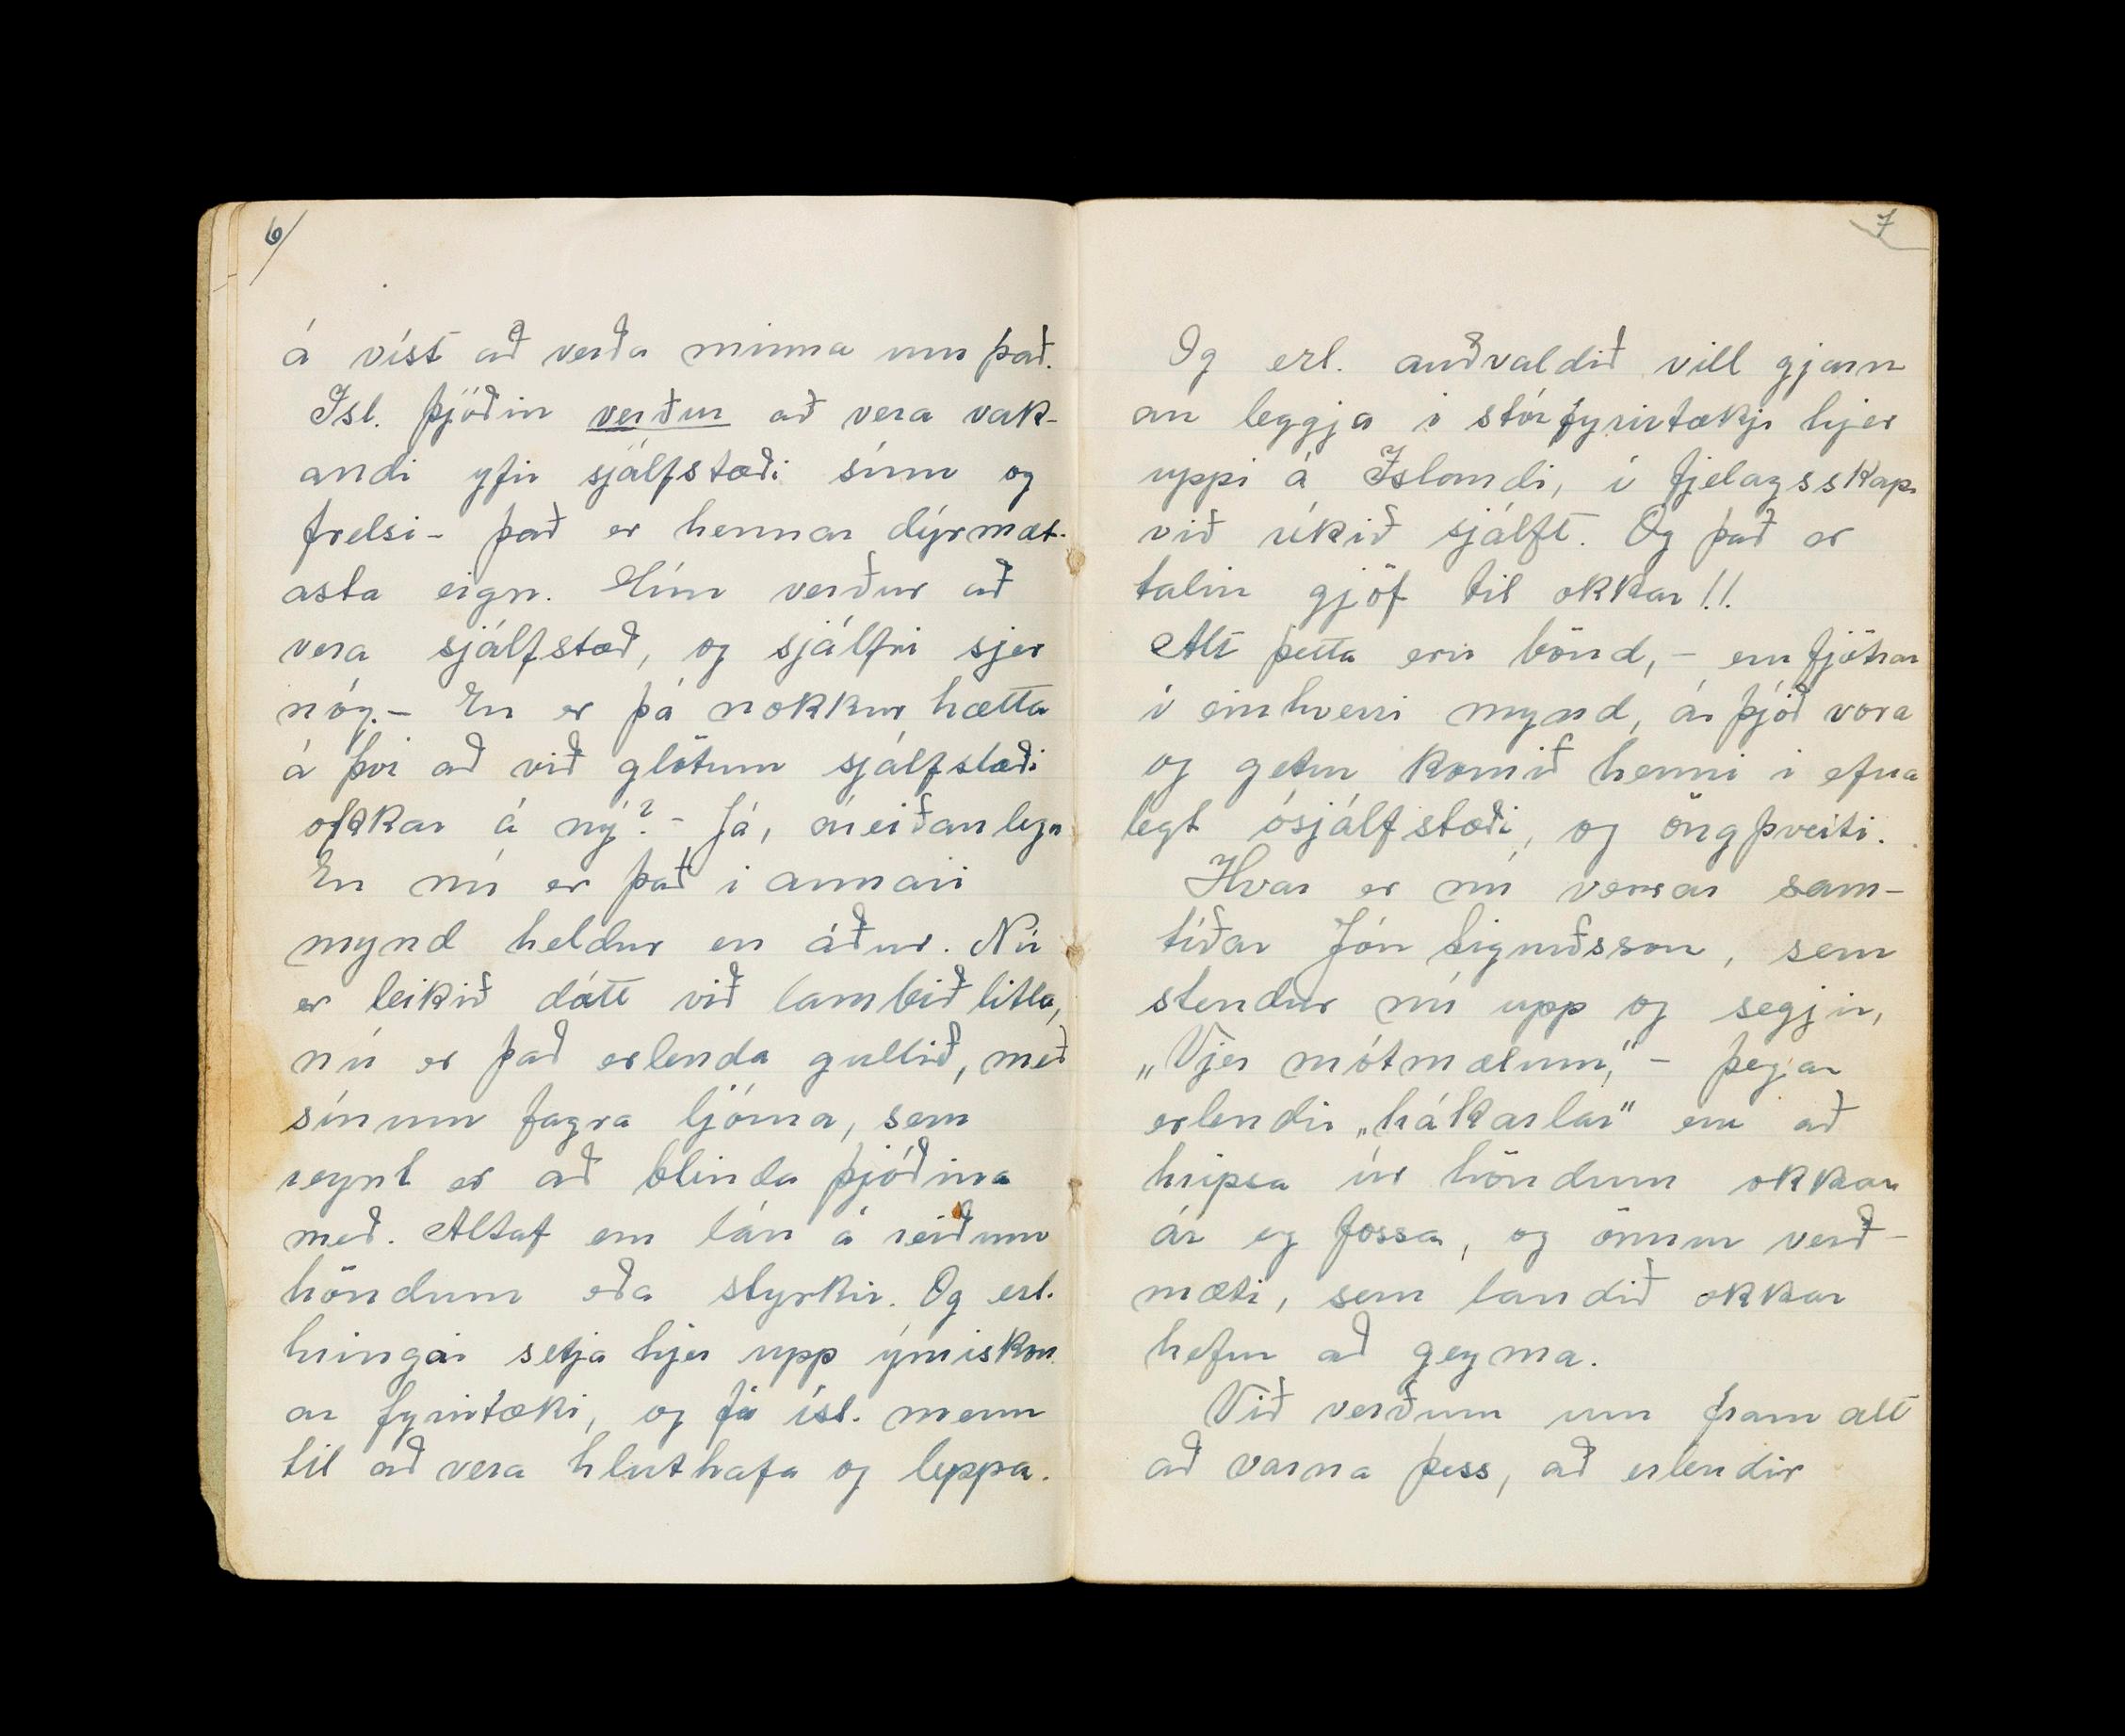 6/
á víst að verða minna um það.
Ísl. þjóðin verður að vera vak-
andi yfir sjálfstæði sínu og
frelsi - það er hennar dýrmæt-
asta eign. Hún verður að
vera sjálfstæð, og sjálfri sjer
nóg. - En er þá nokkur hætta
á því að við glötum sjálfstæði
okkar á ný? - Já, áreiðanlega
En nú er það i annari
mynd heldur en áður. Nú
er leikið dátt við lambið litla,
nú er það erlenda gullið, með
sínum fagra ljóma, sem
reynt er að blinda þjóðina
með. Altaf eru lán á reiðum
höndum eða styrkir. Og erl.
hringar setja hjer upp ýmiskon
ar fyrirtæki, og fá ísl. menn
til að vera hluthafa og leppa.
7
Og erl. auðvaldið vill gjarn
an leggja i stórfyrirtækji hjer
uppi á Íslandi, í fjelagsskap
við ríkið sjálft. Og það er
talin gjöf til okkar!!
Alt þetta eru bönd, - eru fjötrar
í einhverri mynd, á þjóð vora
og getur komið henni i efna
legt ósjálfstæði, og öngþveiti.
Hvar er nú vorrar sam-
tíðar Jón Sigurðsson, sem
stendur nú upp og segjir,
„Vjer mótmælum," - þegar
erlendir „hákarlar" eru að
hripsa úr höndum okkar
ár og fossa, og önnur verð-
mæti, sem landið okkar
hefur að geyma.
Við verðum um fram alt
að varna þess, að erlendir